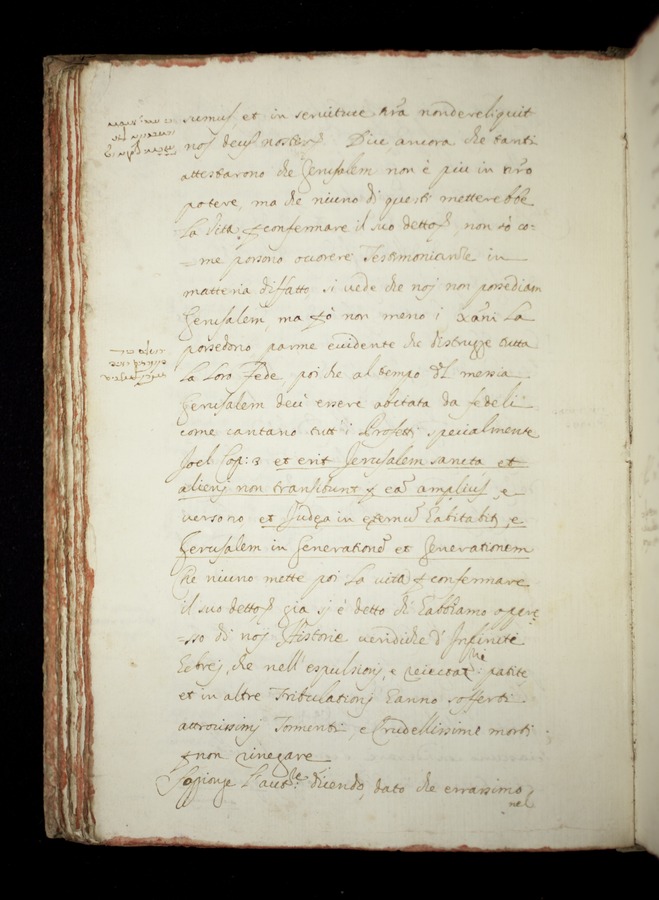 sumus et in servitute nrã nondereliquit
nos deus noster. Dice ancora che tanti
attestarono che Jerusalem non è piu in nrõ
potere, ma che niuno di questi metterebbe
La Vita p confermare il suo detto, non sò co=
=me possono occorere Testimonianze in
matteria di fatto si vede che noj non possediam
Jerusalem, ma pò non meno i Xãni La
possedono parme evidente che destrugge tutta
La Loro Fede poi che al tempo del messia
Jerusalem devi essere abitata da fedeli
come cantano tutt'i Profetti specialmente
Joel Cap: 3 et erit Jerusalem sancta et
alienj non transibunt p eã amplius, e
verso 20 et Judęa in ęternũ habitabit, e
Jerusalem in Generationẽ et Generationem
Che niuno mette poi La vita p confermare
il suo detto, gia sj è detto che habbiamo appre
=sso di noj Historie veridiche d'Infinite
Ebrej, che nell'espulsionj, e patite
et in altre Tribulationj hanno sofferti
attrocissimj Tormenti, e Crudelissime morti
p non rinegare
Soggionge L'autre. dicendo, dato che errassimo
nel